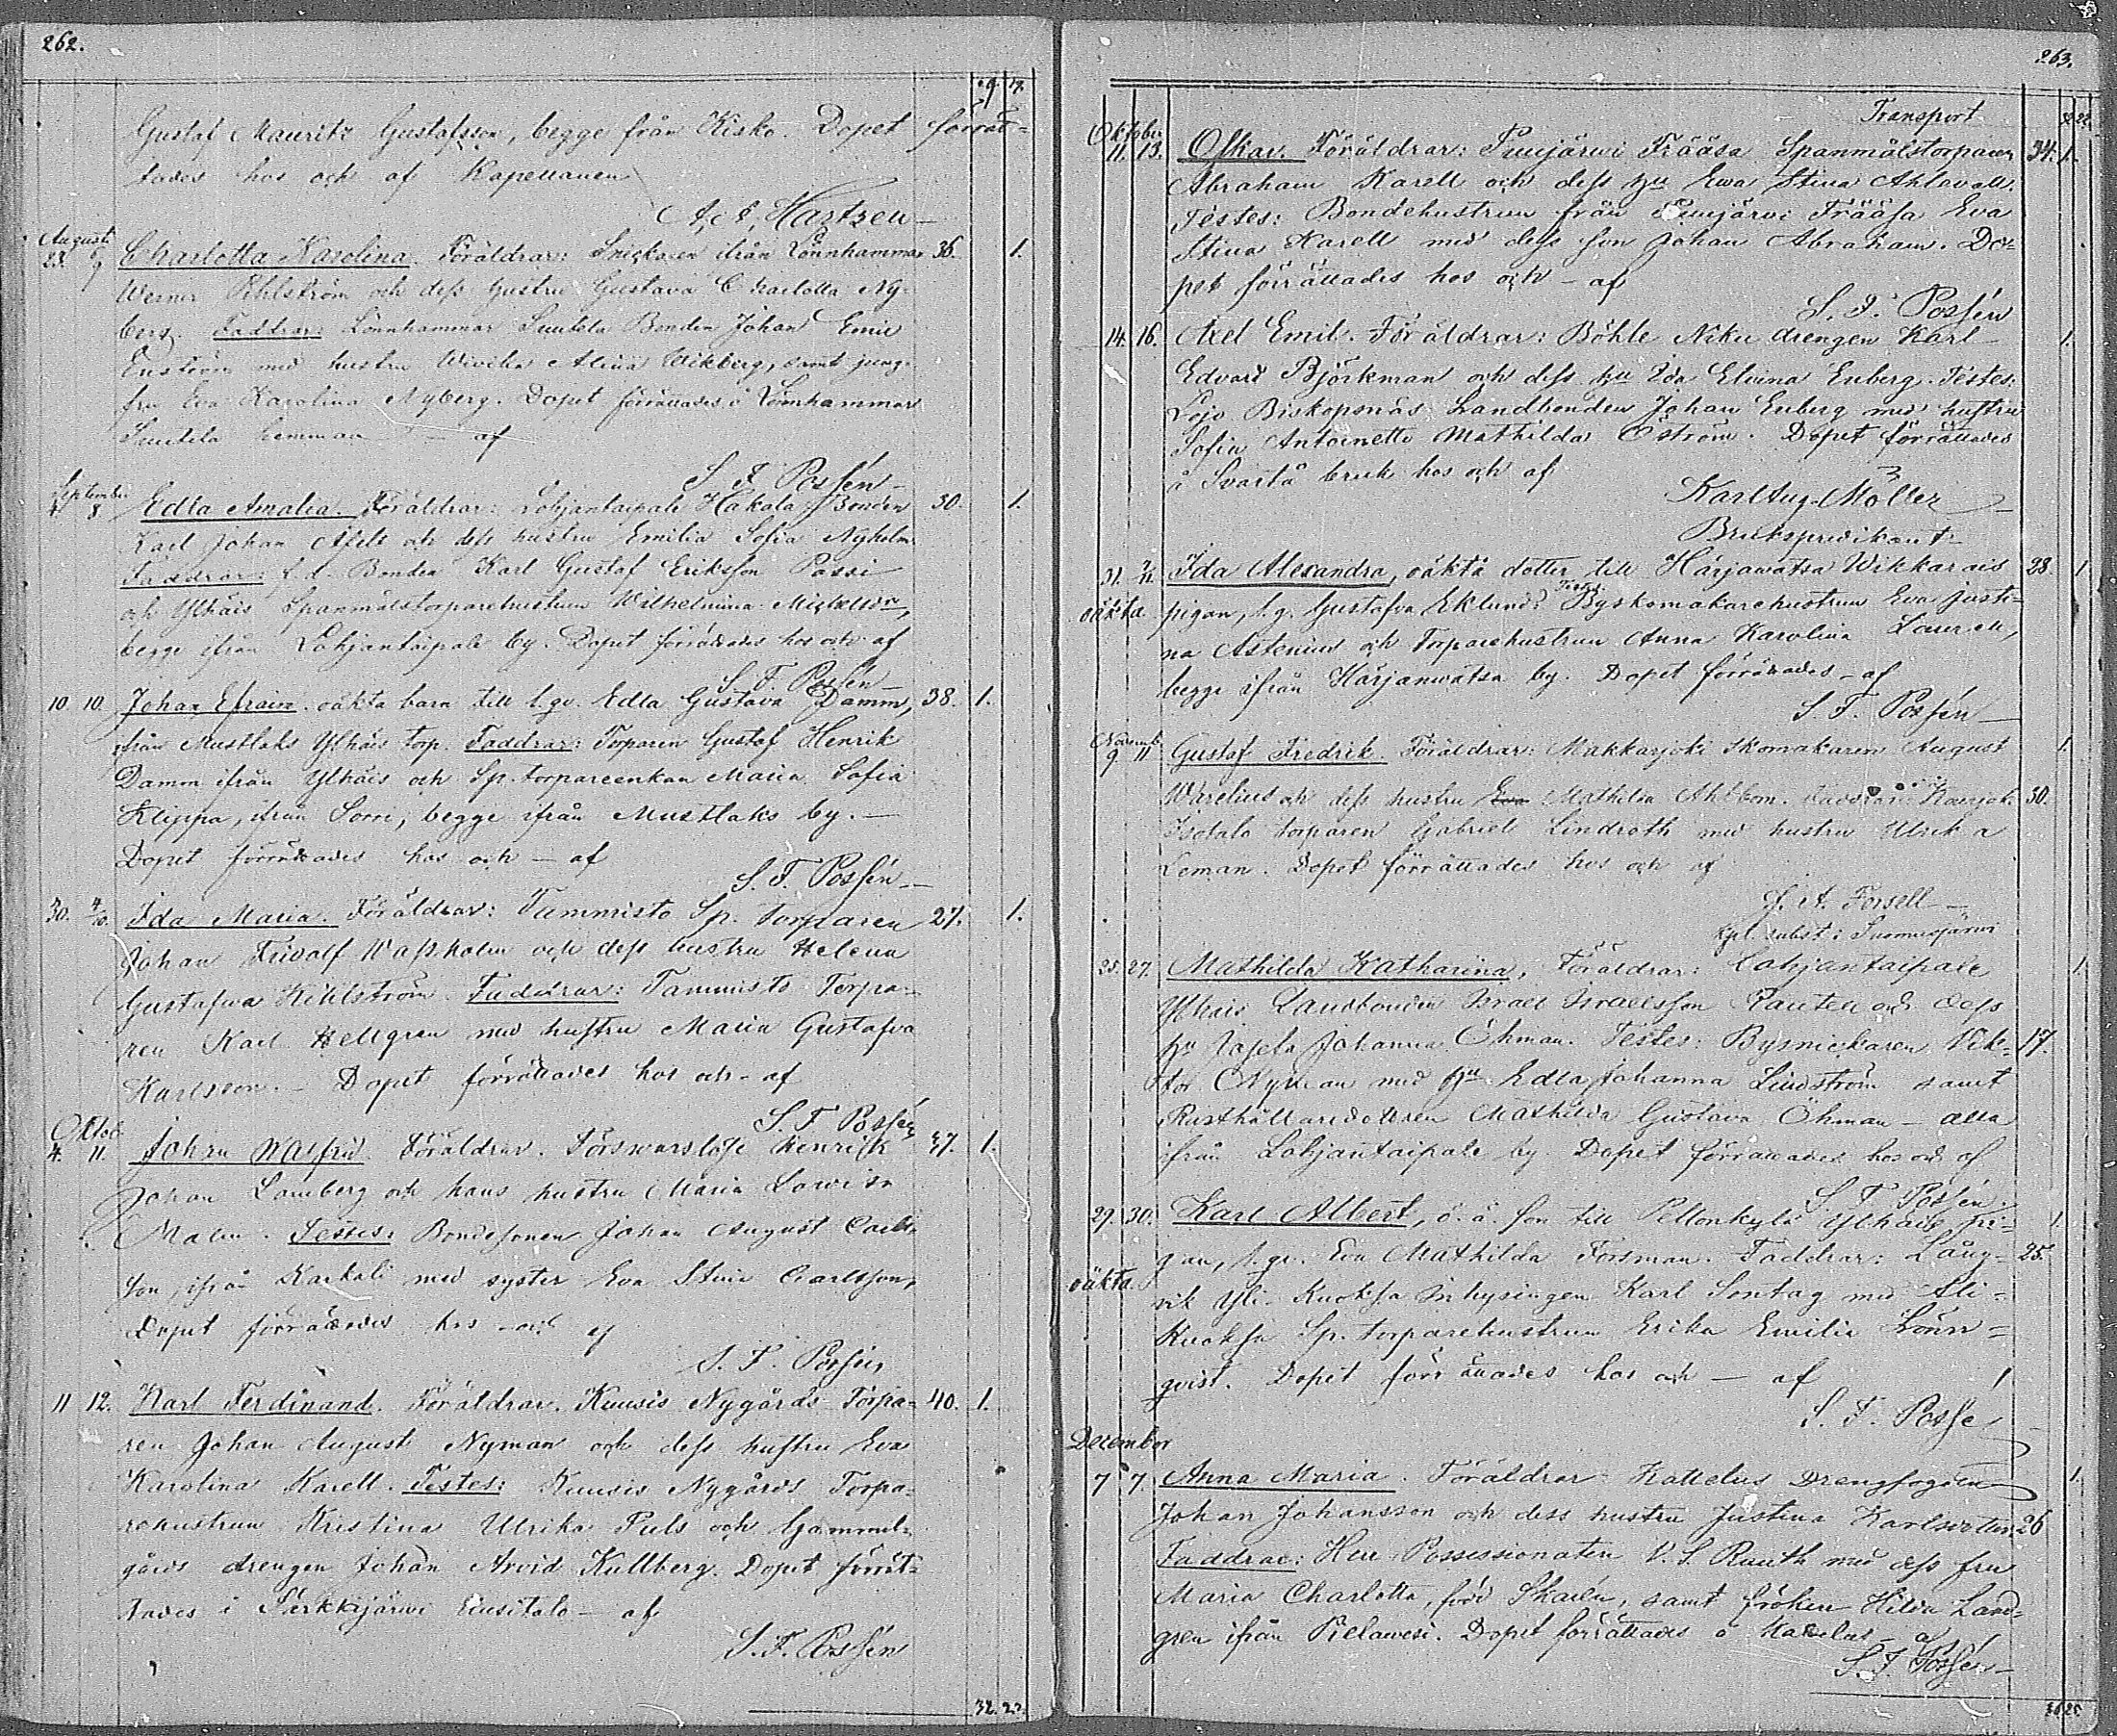 262.
29. 17.
Gustaf Mauritz Gustafsson, begge från Kisko. Dopet förrät-
tades hos och af Kapellanen
Hartzeu
Augusti
28. 9 Charlotta Karolina. Föräldrar: Snickaren ifrån Lönnhammar 36. 1.
Werner Pihlström och dess hustru Gustava Charlotta Ny-
berg. Faddrar: Lönnhammar Suutela Bonden Johan Emil
Enstén med hustru Alina Wikberg, samt jung-
fru Eva Karolina Nyberg. Dopet förrättades å Lönnhammar
Suutela hemman - af
S. F. Possén
September
8 Edla Amalia. Föräldrar: Lohjantaipale Hakala Bonden 30. 1.
Karl Johan och dess hustru Emilia Sofia Nyholm.
Faddrar: f.d. Bonden Karl Gustaf Eriksson Passi
och Ylhäis Spanmålstorparehustrun Wilhelmina
begge ifrån Lohjantaipale by. Dopet förrättades hos och af
S. F. Possén
10 10. Johan Efraim. oäkta barn till l.qv. Edla Gustava Damm, 38. 1.
ifrån Mustlaks Ylhäis torp. Faddrar: Torparen Gustaf Henrik
Damm ifrån Ylhäis och Sp. torpareenkan Maria Sofia
Klippa, ifrån Sorri, begge ifrån Mustlaks by. —
Dopet förrättades hos och - af
S. F. Possén
30. 4/10. Ida Maria. Föräldrar: Tammisto Sp. torparen 27. 1.
Johan Fridolf Wassholm och dess hustru Helena
Gustafva Kihlström. Faddrar: Tammisto Torpa-
ren Karl Hellgren med hustru Maria Gustafva
Karlsson. - Dopet förrättades hos och - af
S. F. Possén
Oktob.
4. 11. Johan Walfrid. Föräldrar. Förswarslöse Henrik 37. 1.
Johan Lamberg och hans hustru Maria Lowisa
Malm. Testes: Bondesonen Johan August Carls-
son, ifrån Karkali med syster Eva Stina Carlsson,
Dopet förrättades hos och af
S. F. Possén
11 12. Karl Ferdinand. Föräldrar. Kuusis Nygårds Torpa- 40. 1.
ren Johan August Nyman och dess hustru Eva
Karolina Karell. Testes: Kuusis Nygårds Torpa-
rehustrun Kristina Ulrika Puls och Gammel-
gårds drengen Johan Arvid Kullberg. Dopet förrät-
tades i Särkkijärwi Uusitalo - af
S. F. Possén
32. 22.
263.
Transport 32. 22.
Oktober
11. 13. Oskar. Föräldrar: Puujärwi Frääsa Spanmålstorparen 34. 1.
Abraham Karell och dess hu Ewa Stina Ahlavall.
Testes: Bondehustrun från Puujärwi Frääsa Eva
Stina Karell med dess son Johan Abraham. Do-
pet förrättades hos och - af
S. F. Possén
14. 16. Axel Emil. Föräldrar: Böhle Niku drengen Karl 1.
Edvard Björkman och dess hu Ida Elvina Enberg. Testes:
Lojo Biskopsnäs Landbonden Johan Enberg med hustru
Sofia Antoinette Mathilda Öström. Dopet förrättades
å Svartå bruk hos och af
Karl Aug. Möller
Brukspredikant
31. 2/11. Ida Alexandra, oäkta dotter till Härjawatsa Wikkarais 28 1
oäkta. pigan, l.q. Gustafva Eklund. Testes: Byskomakarehustrun Eva Justi-
na Astenius och Torparehustrun Anna Karolina Laurell,
begge ifrån Härjanwatsa by. Dopet förrättades - af
S. F. Possén
Novemb.
9 11 Gustaf Fredrik. Föräldrar: Makkarjoki skomakaren August 1.
Warelius och dess hustru Eva Mathilda Ahlbom. Faddrar: Karjok. 30.
Isotalo torparen Gabriel Lindroth med hustru Ulrika
Leman. Dopet förrättades hos och af
Forsell
kpl. subst. i Suomusjärwi
25. 27. Mathilda Katharina, Föräldrar: Lohjantaipale 1.
Ylhäis Landbonden Israel Israelsson Rautell och dess
hu Josefa Johanna Öhman. Testes: Bysnickaren Vik- 17.
tor Nyman med hu Edla Johanna Lindström samt
Rusthållaredottren Mathilda Gustava Öhman - alla
ifrån Lohjantaipale by. Dopet förrättades hos och af
S. F. Possén
29. 30. Karl Albert, o. ä. son till Pellonkylä Ylhäis pi- 1.
gan, l.qv. Eva Mathilda Forsman. Faddrar: Lång- 25.
oäkta. vik Yli-Kuoksa Inhysingen Karl Sontag med Ali-
Kuoksa Sp. torparehustrun Erika Emilia Lönn-
qvist. Dopet förrättades hos och - af
S. F. Possén
December
7 7. Anna Maria. Föräldrar Kattelus Drengfogden 1.
Johan Johansson och dess hustru Justina Karlsdotter 26
Faddrar: Herr Possessionaten V. S. Ruuth med dess fru
Maria Charlotta, född Skarén, samt fröken Hilda Land-
gren ifrån Pielawesi. Dopet förrättades å Kattelus af
S. F. Possén